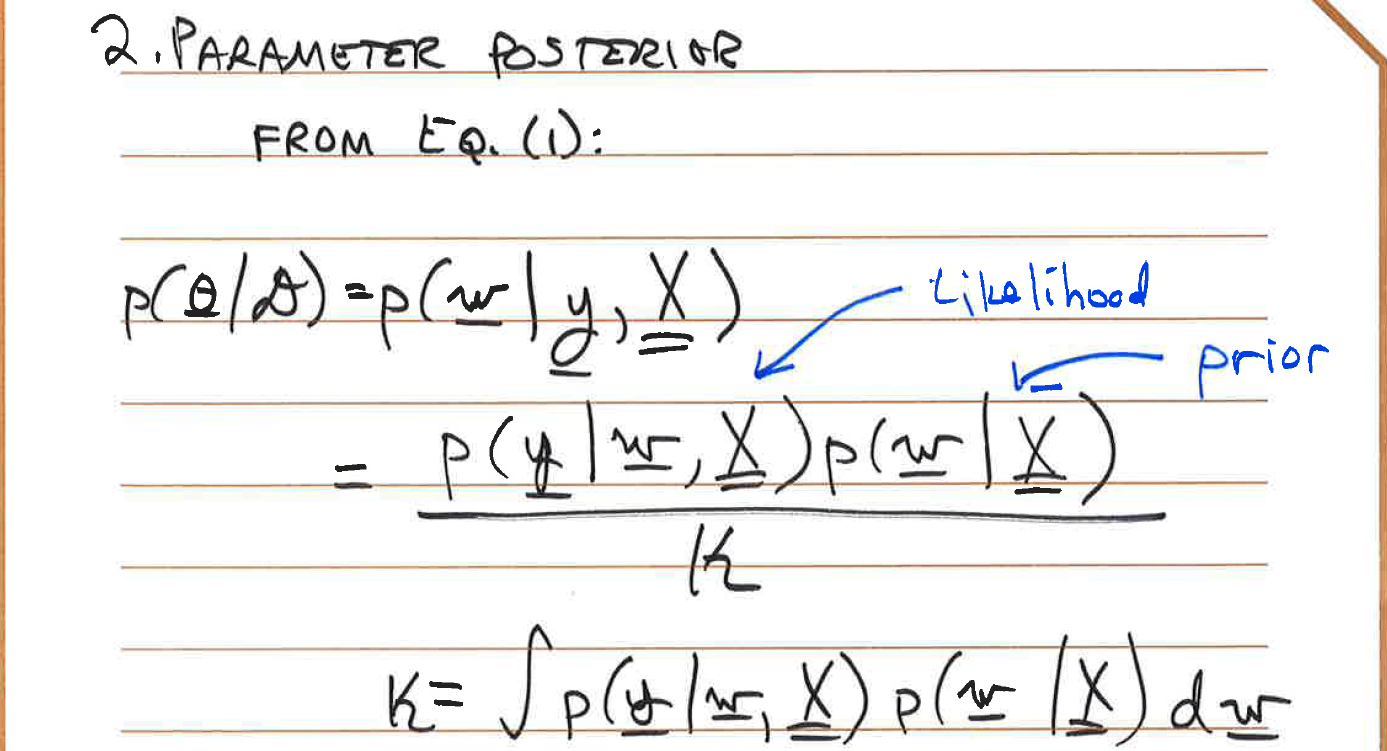 2. PARAMETER POSTERIOR
FROM EQ. (1):
p(θ|𝒟) = p(w | y, X)
Likelihood
prior
= p(y | w, X) p(w | X)
K
K = ∫ p(y | w, X) p(w | X) d w